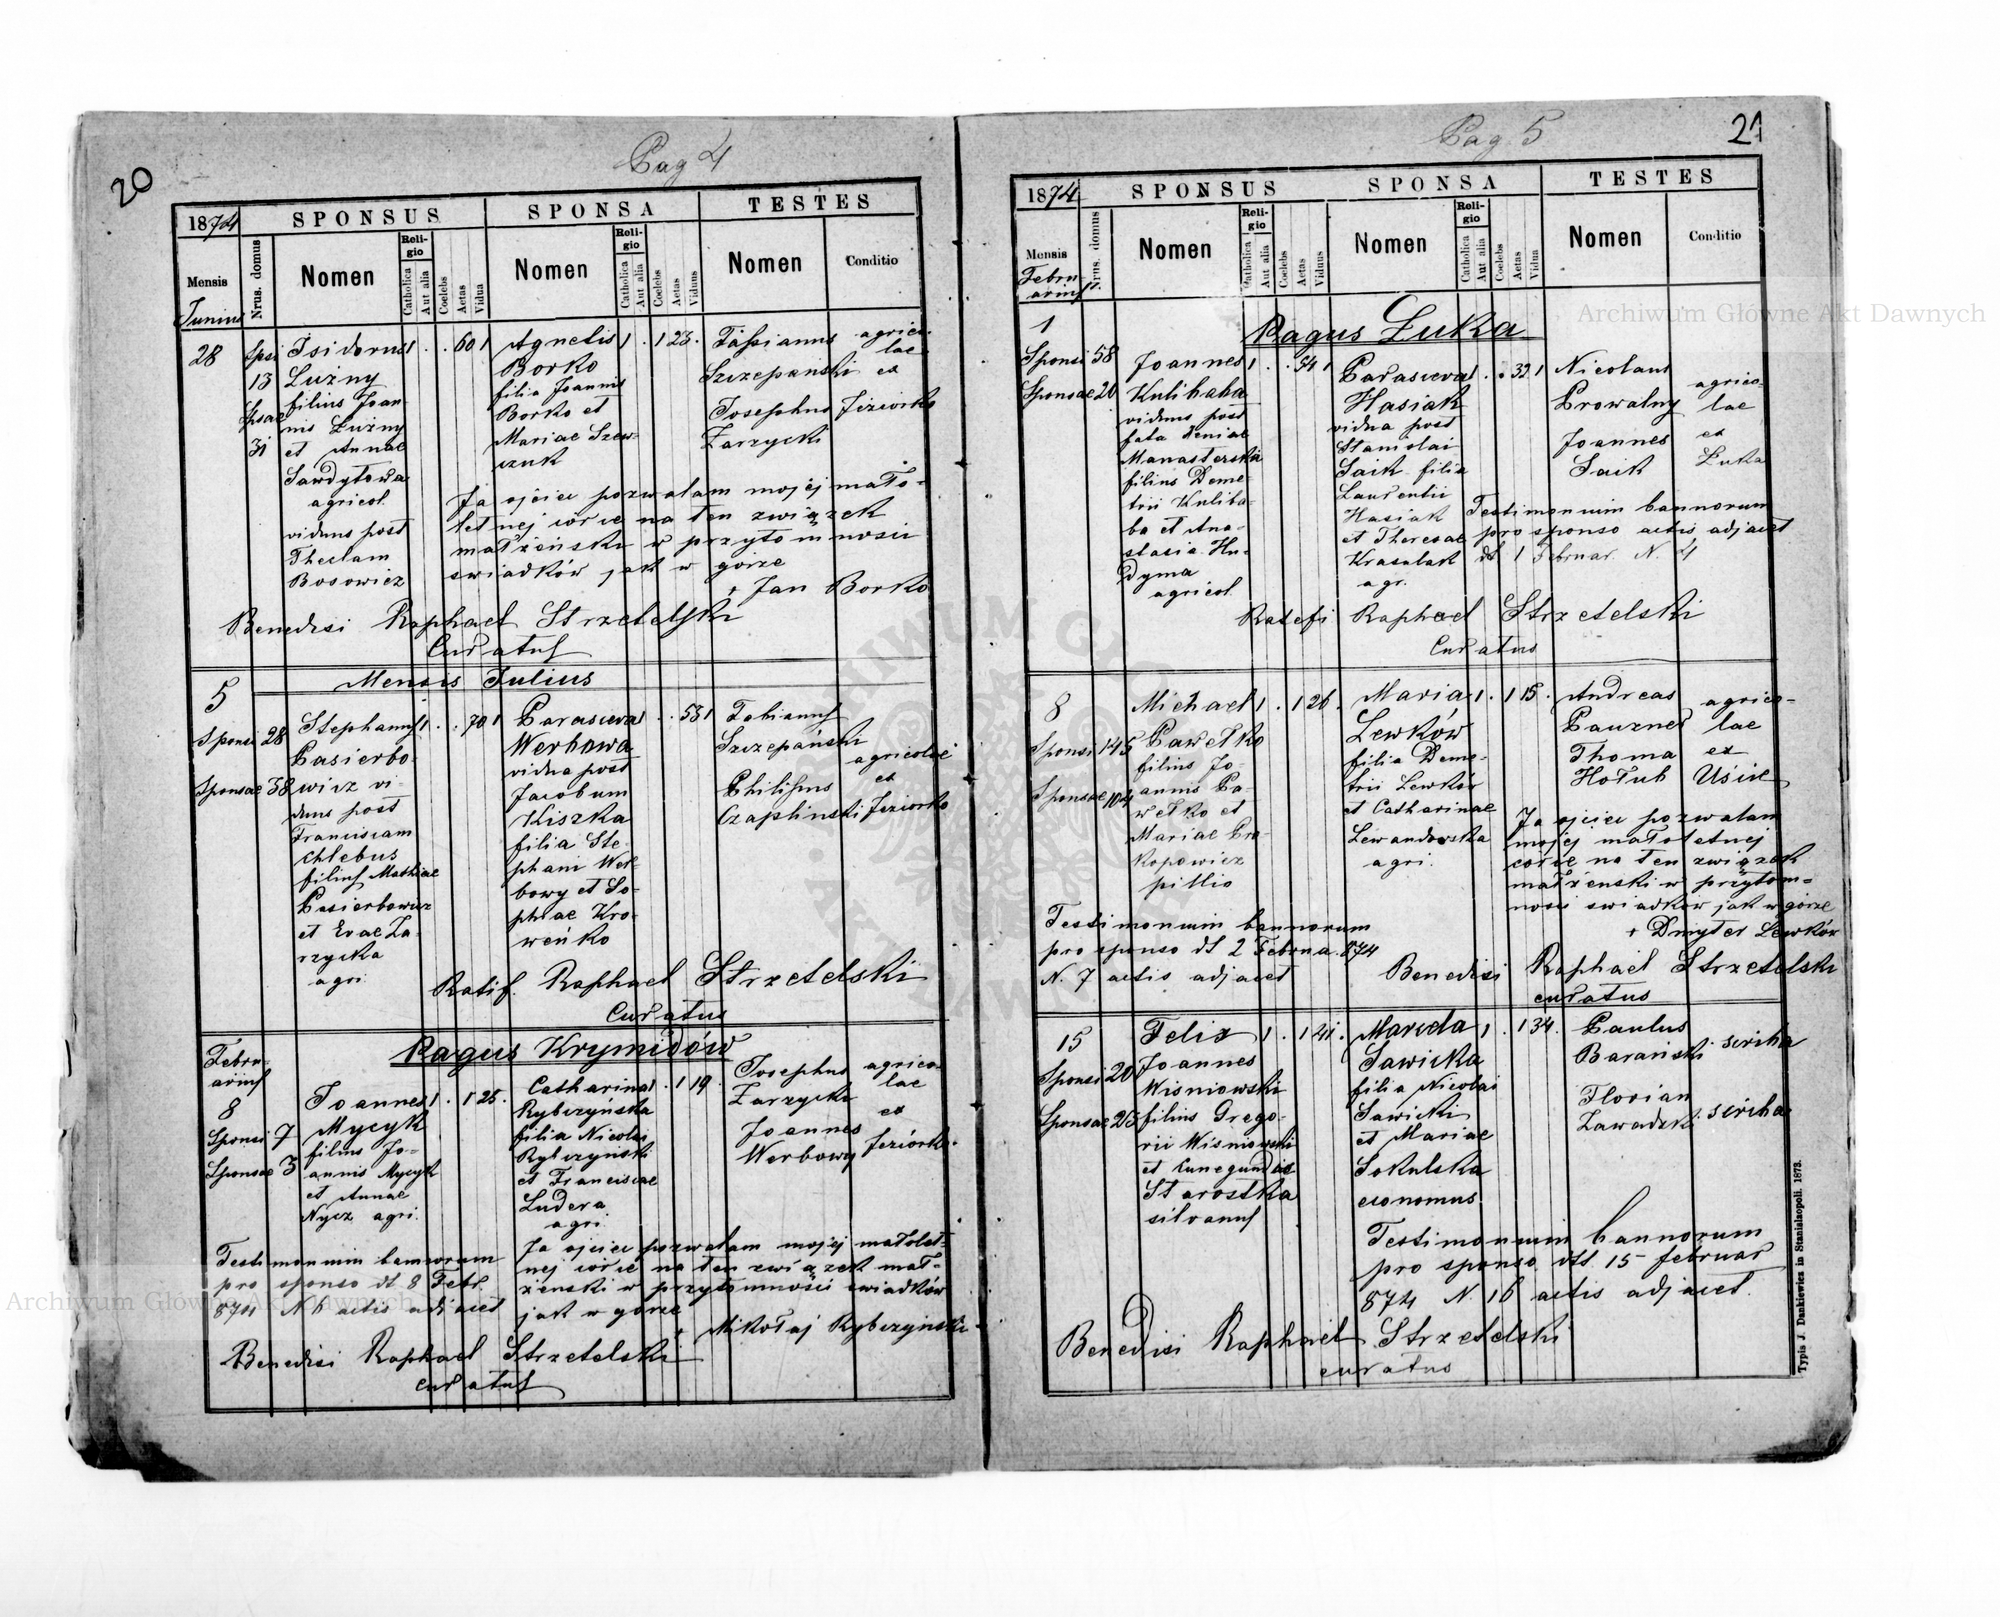 20
Pag 4
1874
SPONSUS
SPONSA
TESTES
Mensis
Nrus. domus
Nomen
Religio
Catholica
Aut alia
Coelebs
Aetas
Vidua
Nomen
Religio
Catholica
Aut alia
Coelebs
Aetas
Viduus
Nomen
Conditio
Junius
28
Spsi
13
Spsae
31
Isidorus
Łużny
filius Joan-
nis Łużny
et Annae
Sawdytowa
agricol.
viduus post
Theclam
Bosowicz
1 . . 60 1
Agnetis
Borko
filia Joannis
Borko et
Mariae Szew-
czuk
1 . 1 23 .
Fabianus
Szczepański
Josephus
Zarzycki
agrico-
lae
ex
Jeziorko
Ja ojciec pozwalam mojej mało-
letnej córce na ten związek
małżeński w przytomności
swiadków jak w górze
+ Jan Borko
Benedixi Raphael Strzetelski
Curatus
Mensis Julius
5
Sponsi 28
Sponsae 38
Stephanus
Pasierbo-
wicz vi-
duus post
Franciscam
Chlebus
filius Mathiae
Pasierbowicz
et Evae Za-
rzycka
agri.
1 . . 70 1
Parasceva
Werbowa
vidua post
Jacobum
Kiszka
filia Ste-
phani Wer-
bowy et So-
phiae Kro-
weńko
1 . . 53 1
Fabianus
Szczepański
Philipus
Czaplinski
agricolae
ex
Jeziorko
Ratif. Raphael Strzetelski
Curatus
Pagus Krymidów
Febru-
arius
8
Sponsi 7
Sponsae 3
Joannes
Mycyk
filius Jo-
annis Mycyk
et Annae
Nycz agri.
1 . 1 25 .
Catharina
Rybczyńska
filia Nicolai
Rybczyński
et Franciscae
Ludera
agri.
1 . 1 19 .
Josephus
Zarzycki
Joannes
Werbowy
agrico-
lae
ex
Jeziórko.
Testimonium bannorum
pro sponso dt 8 Febr.
874 N 6 actis adjacet
Ja ojciec pozwalam mojej małolet-
nej córce na ten związek mał-
żenski w przytomności swiadków
jak w górze
+ Mikołaj Rybczyński
Benedixi Raphael Strzetelski
curatus
Pag 5
21
1874
SPONSUS
SPONSA
TESTES
Mensis
Nrus. domus
Nomen
Religio
Catholica
Aut alia
Coelebs
Aetas
Viduus
Nomen
Religio
Catholica
Aut alia
Coelebs
Aetas
Vidua
Nomen
Conditio
Febru-
arius
Pagus Łuka
1
Sponsi 58
Sponsae 20
Joannes
Kulibaba
viduus post
fata Xeniae
Manasterska
filius Deme-
trii Kuliba-
ba et Ana-
stasia Hu-
dyma
agricol.
1 . . 54 1
Parasceva
Hasiak
vidua post
Stanislai
Saik filia
Laurentii
Hasiak
et Theresae
Krasulak
agr.
1 . . 32 1
Nicolaus
Prowalny
Joannes
Saik
agrico-
lae
ex
Łuka
Testimonium bannorum
pro sponso actis adjacet
dt 1 Februar. N. 4
Ratefi Raphael Strzetelski
Curatus
8
Sponsi 145
Sponsae 104
Michael
Pawełko
filius Jo-
annis Pa-
wełko et
Mariae Pro-
kopowicz
pillio
1 . 1 26 .
Maria
Lewków
filia Deme-
trii Lewków
et Catharinae
Lewandowska
agri.
1 . 1 15 .
Andreas
Pauzner
Thoma
Hołub
agrico-
lae
ex
Uście
Ja ojciec pozwalam
mojej małoletnej
córce na ten związek
małżenski w przytom-
nosci swiadków jak w górze
+ Dmyter Lewków
Testimonium bannorum
pro sponso dt 2 Februa. 874
N. 7 actis adjacet
Benedixi Raphael Strzetelski
curatus
15
Sponsi 20
Sponsae 25
Felix
Joannes
Wiśniowski
filius Grego-
rii Wiśniowski
et Cunegundis
Starostka
silvanus
1 . 1 41 .
Marcela
Sawicka
filia Nicolai
Sawicki
et Mariae
Sokulska
economus
1 . 1 34 .
Paulus
Barański
Florian
Zawadzki
scriba
scriba
Testimonium bannorum
pro sponso dtt 15 februar
874 N. 16 actis adjacet.
Benedixi Raphael Strzetelski
curatus
Typis J. Dankiewicz in Stanislaopoli. 1873.
Archiwum Główne Akt Dawnych
Archiwum Główne Akt Dawnych